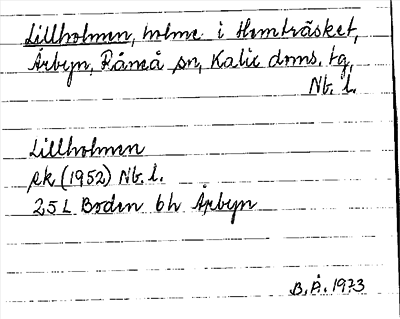 Lillholmen, holme i Hemträsket,
Årbyn, Råneå sn, Kalix doms. tg,
Nb. l.
Lillholmen
ek (1952) Nb. l.
25 L Boden bh Årbyn
B. Å. 1973